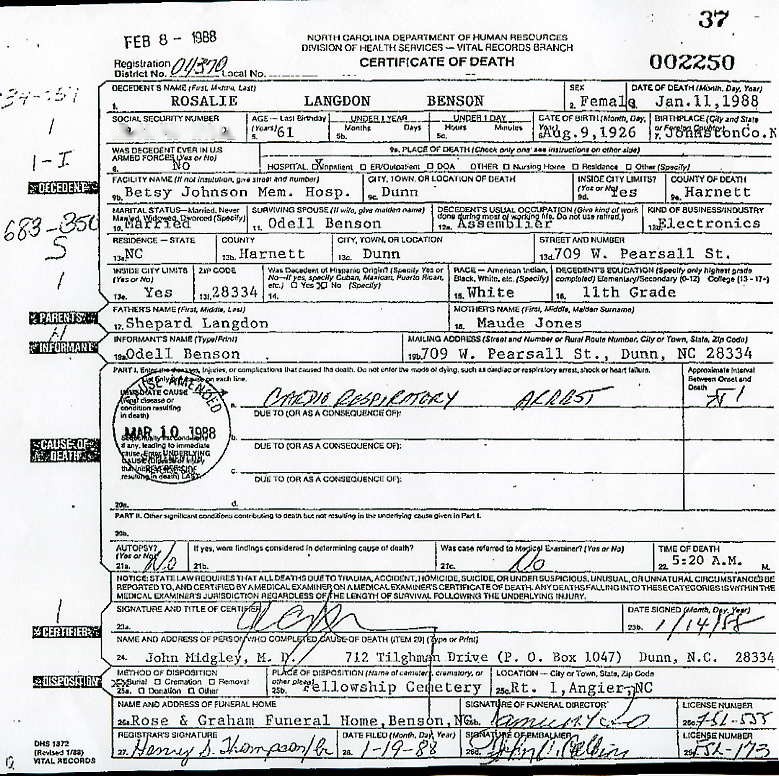 37
FEB 8 - 1988
NORTH CAROLINA DEPARTMENT OF HUMAN RESOURCES
DIVISION OF HEALTH SERVICES — VITAL RECORDS BRANCH
CERTIFICATE OF DEATH
002250
Registration District No. 04370 Local No.
DECEDENT'S NAME (First, Middle, Last) SEX DATE OF DEATH (Month, Day, Year)
1. ROSALIE LANGDON BENSON 2. Female Jan.11,1988
SOCIAL SECURITY NUMBER AGE — Last Birthday (Years) UNDER 1 YEAR UNDER 1 DAY DATE OF BIRTH (Month, Day, Year) BIRTHPLACE (City and State or Foreign Country)
5. 61 5b. Months Days 5c. Hours Minutes 6. Aug.9,1926 7. Johnston Co.N
1
1-I
WAS DECEDENT EVER IN U.S. ARMED FORCES? (Yes or No) 9a. PLACE OF DEATH (Check only one: see instructions on other side)
8. NO HOSPITAL: X Inpatient ER/Outpatient DOA OTHER: Nursing Home Residence Other (Specify)
DECEDENT
FACILITY NAME (If not institution, give street and number) CITY, TOWN, OR LOCATION OF DEATH INSIDE CITY LIMITS? (Yes or No) COUNTY OF DEATH
9b. Betsy Johnson Mem. Hosp. 9c. Dunn 9d. Yes 9e. Harnett
683-350
S
MARITAL STATUS—Married, Never Married, Widowed, Divorced (Specify) SURVIVING SPOUSE (If wife, give maiden name) DECEDENT'S USUAL OCCUPATION (Give kind of work done during most of working life. Do not use retired.) KIND OF BUSINESS/INDUSTRY
10. Married 11. Odell Benson 12a. Assemblier 12b. Electronics
RESIDENCE — STATE COUNTY CITY, TOWN, OR LOCATION STREET AND NUMBER
13a. NC 13b. Harnett 13c. Dunn 13d. 709 W. Pearsall St.
1
INSIDE CITY LIMITS (Yes or No) ZIP CODE Was Decedent of Hispanic Origin? (Specify Yes or No—If yes, specify Cuban, Mexican, Puerto Rican, etc.) Yes X No (Specify) RACE — American Indian, Black, White, etc. (Specify) DECEDENT'S EDUCATION (Specify only highest grade completed) Elementary/Secondary (0-12) College (13-17+)
13e. Yes 13f. 28334 14. 15. White 16. 11th Grade
PARENTS
FATHER'S NAME (First, Middle, Last) MOTHER'S NAME (First, Middle, Maiden Surname)
17. Shepard Langdon 18. Maude Jones
INFORMANT
INFORMANT'S NAME (Type/Print) MAILING ADDRESS (Street and Number or Rural Route Number, City or Town, State, Zip Code)
19a. Odell Benson 19b. 709 W. Pearsall St., Dunn, NC 28334
PART I. Enter the diseases, injuries, or complications that caused the death. Do not enter the mode of dying, such as cardiac or respiratory arrest, shock or heart failure. List only one cause on each line.
Approximate Interval Between Onset and Death
IMMEDIATE CAUSE (Final disease or condition resulting in death)
a. CARDIO RESPIRATORY ARREST
DUE TO (OR AS A CONSEQUENCE OF):
CAUSE AMENDED
MAR 10 1988
b.
DUE TO (OR AS A CONSEQUENCE OF):
CAUSE OF DEATH
c.
DUE TO (OR AS A CONSEQUENCE OF):
20a. d.
PART II. Other significant conditions contributing to death but not resulting in the underlying cause given in Part I.
20b.
AUTOPSY? (Yes or No) If yes, were findings considered in determining cause of death? Was case referred to Medical Examiner? (Yes or No) TIME OF DEATH
21a. No 21b. 21c. No 22. 5:20 A.M. M.
NOTICE: STATE LAW REQUIRES THAT ALL DEATHS DUE TO TRAUMA, ACCIDENT, HOMICIDE, SUICIDE, OR UNDER SUSPICIOUS, UNUSUAL, OR UNNATURAL CIRCUMSTANCES BE
REPORTED TO, AND CERTIFIED BY A MEDICAL EXAMINER ON A MEDICAL EXAMINER'S CERTIFICATE OF DEATH. ANY DEATHS FALLING INTO THESE CATEGORIES IS WITHIN THE
MEDICAL EXAMINER'S JURISDICTION REGARDLESS OF THE LENGTH OF SURVIVAL FOLLOWING THE UNDERLYING INJURY.
1
CERTIFIER
SIGNATURE AND TITLE OF CERTIFIER DATE SIGNED (Month, Day, Year)
23a. 23b. 1/14/88
NAME AND ADDRESS OF PERSON WHO COMPLETED CAUSE OF DEATH (ITEM 20) (Type or Print)
24. John Midgley, M. D. 712 Tilghman Drive (P. O. Box 1047) Dunn, N.C. 28334
DISPOSITION
METHOD OF DISPOSITION PLACE OF DISPOSITION (Name of cemetery, crematory, or other place) LOCATION — City or Town, State, Zip Code
Burial Cremation Removal
25a. Donation Other 25b. Fellowship Cemetery 25c. Rt. 1, Angier, NC
NAME AND ADDRESS OF FUNERAL HOME SIGNATURE OF FUNERAL DIRECTOR LICENSE NUMBER
26a. Rose & Graham Funeral Home, Benson, NC 26b.
DHS 1872
(Revised 1/88)
VITAL RECORDS
REGISTRAR'S SIGNATURE DATE FILED (Month, Day, Year) SIGNATURE OF EMBALMER LICENSE NUMBER
27. Henry S. Thompson Jr 28. 1-19-88